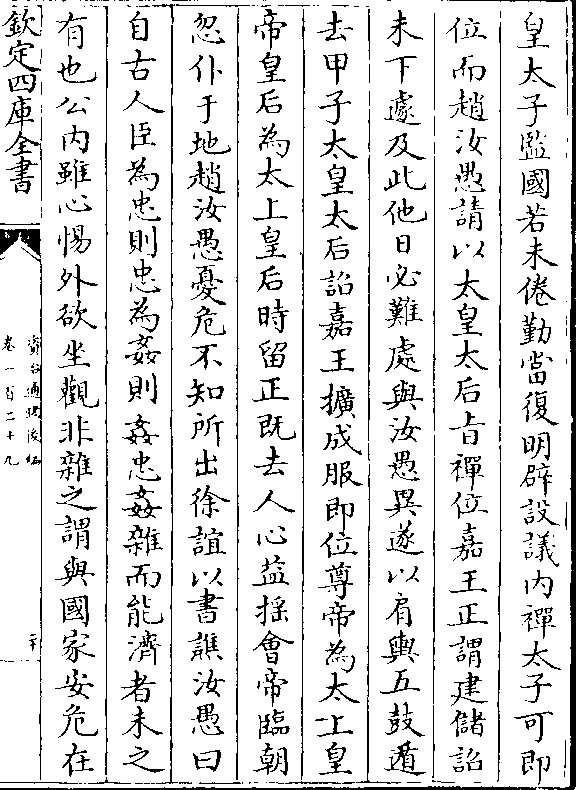 皇太子監國若未倦勤當復明辟設議内禪太子可即
位而趙汝愚請以太皇太后旨禪位嘉王正謂建儲詔
未下遽及此他日必難處與汝愚異遂以肩輿五鼓遁
去甲子太皇太后詔嘉王擴成服即位尊帝為太上皇
帝皇后為太上皇后時留正既去人心益揺會帝臨朝
忽仆于地趙汝愚憂危不知所出徐誼以書譙汝愚曰
自古人臣為忠則忠為姦則姦忠姦雜而能濟者未之
有也公内雖心惕外欲坐觀非雜之謂與國家安危在
欽定四庫全書
資治通鑑後編
卷一百二十九